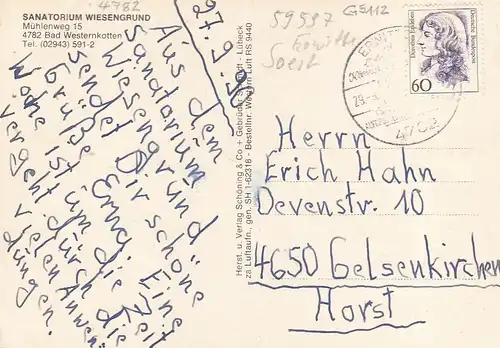 4782
SANATORIUM WIESENGRUND
Mühlenweg 15
4782 Bad Westernkotten
Tel. (02943) 591-2
27.9.90
Aus dem
Sanatorium
Wiesengrund
sendet Dir schöne
Grüße Erna. Eine
Woche ist um, die Zeit
vergeht durch die
vielen Anwen-
dungen.
Herst. u. Verlag Schöning & Co + Gebrüder Schmidt - Lübeck
za Luftaufn., gen. SH 1-62318 - Bestellnr. Westernk. Luft RS 9440
59597
G5112
Erwitte
Soest
4782
Deutsche Bundespost
Dorothea Erxleben
60
Herrn
Erich Hahn
Devenstr. 10
4650 Gelsenkirchen
Horst